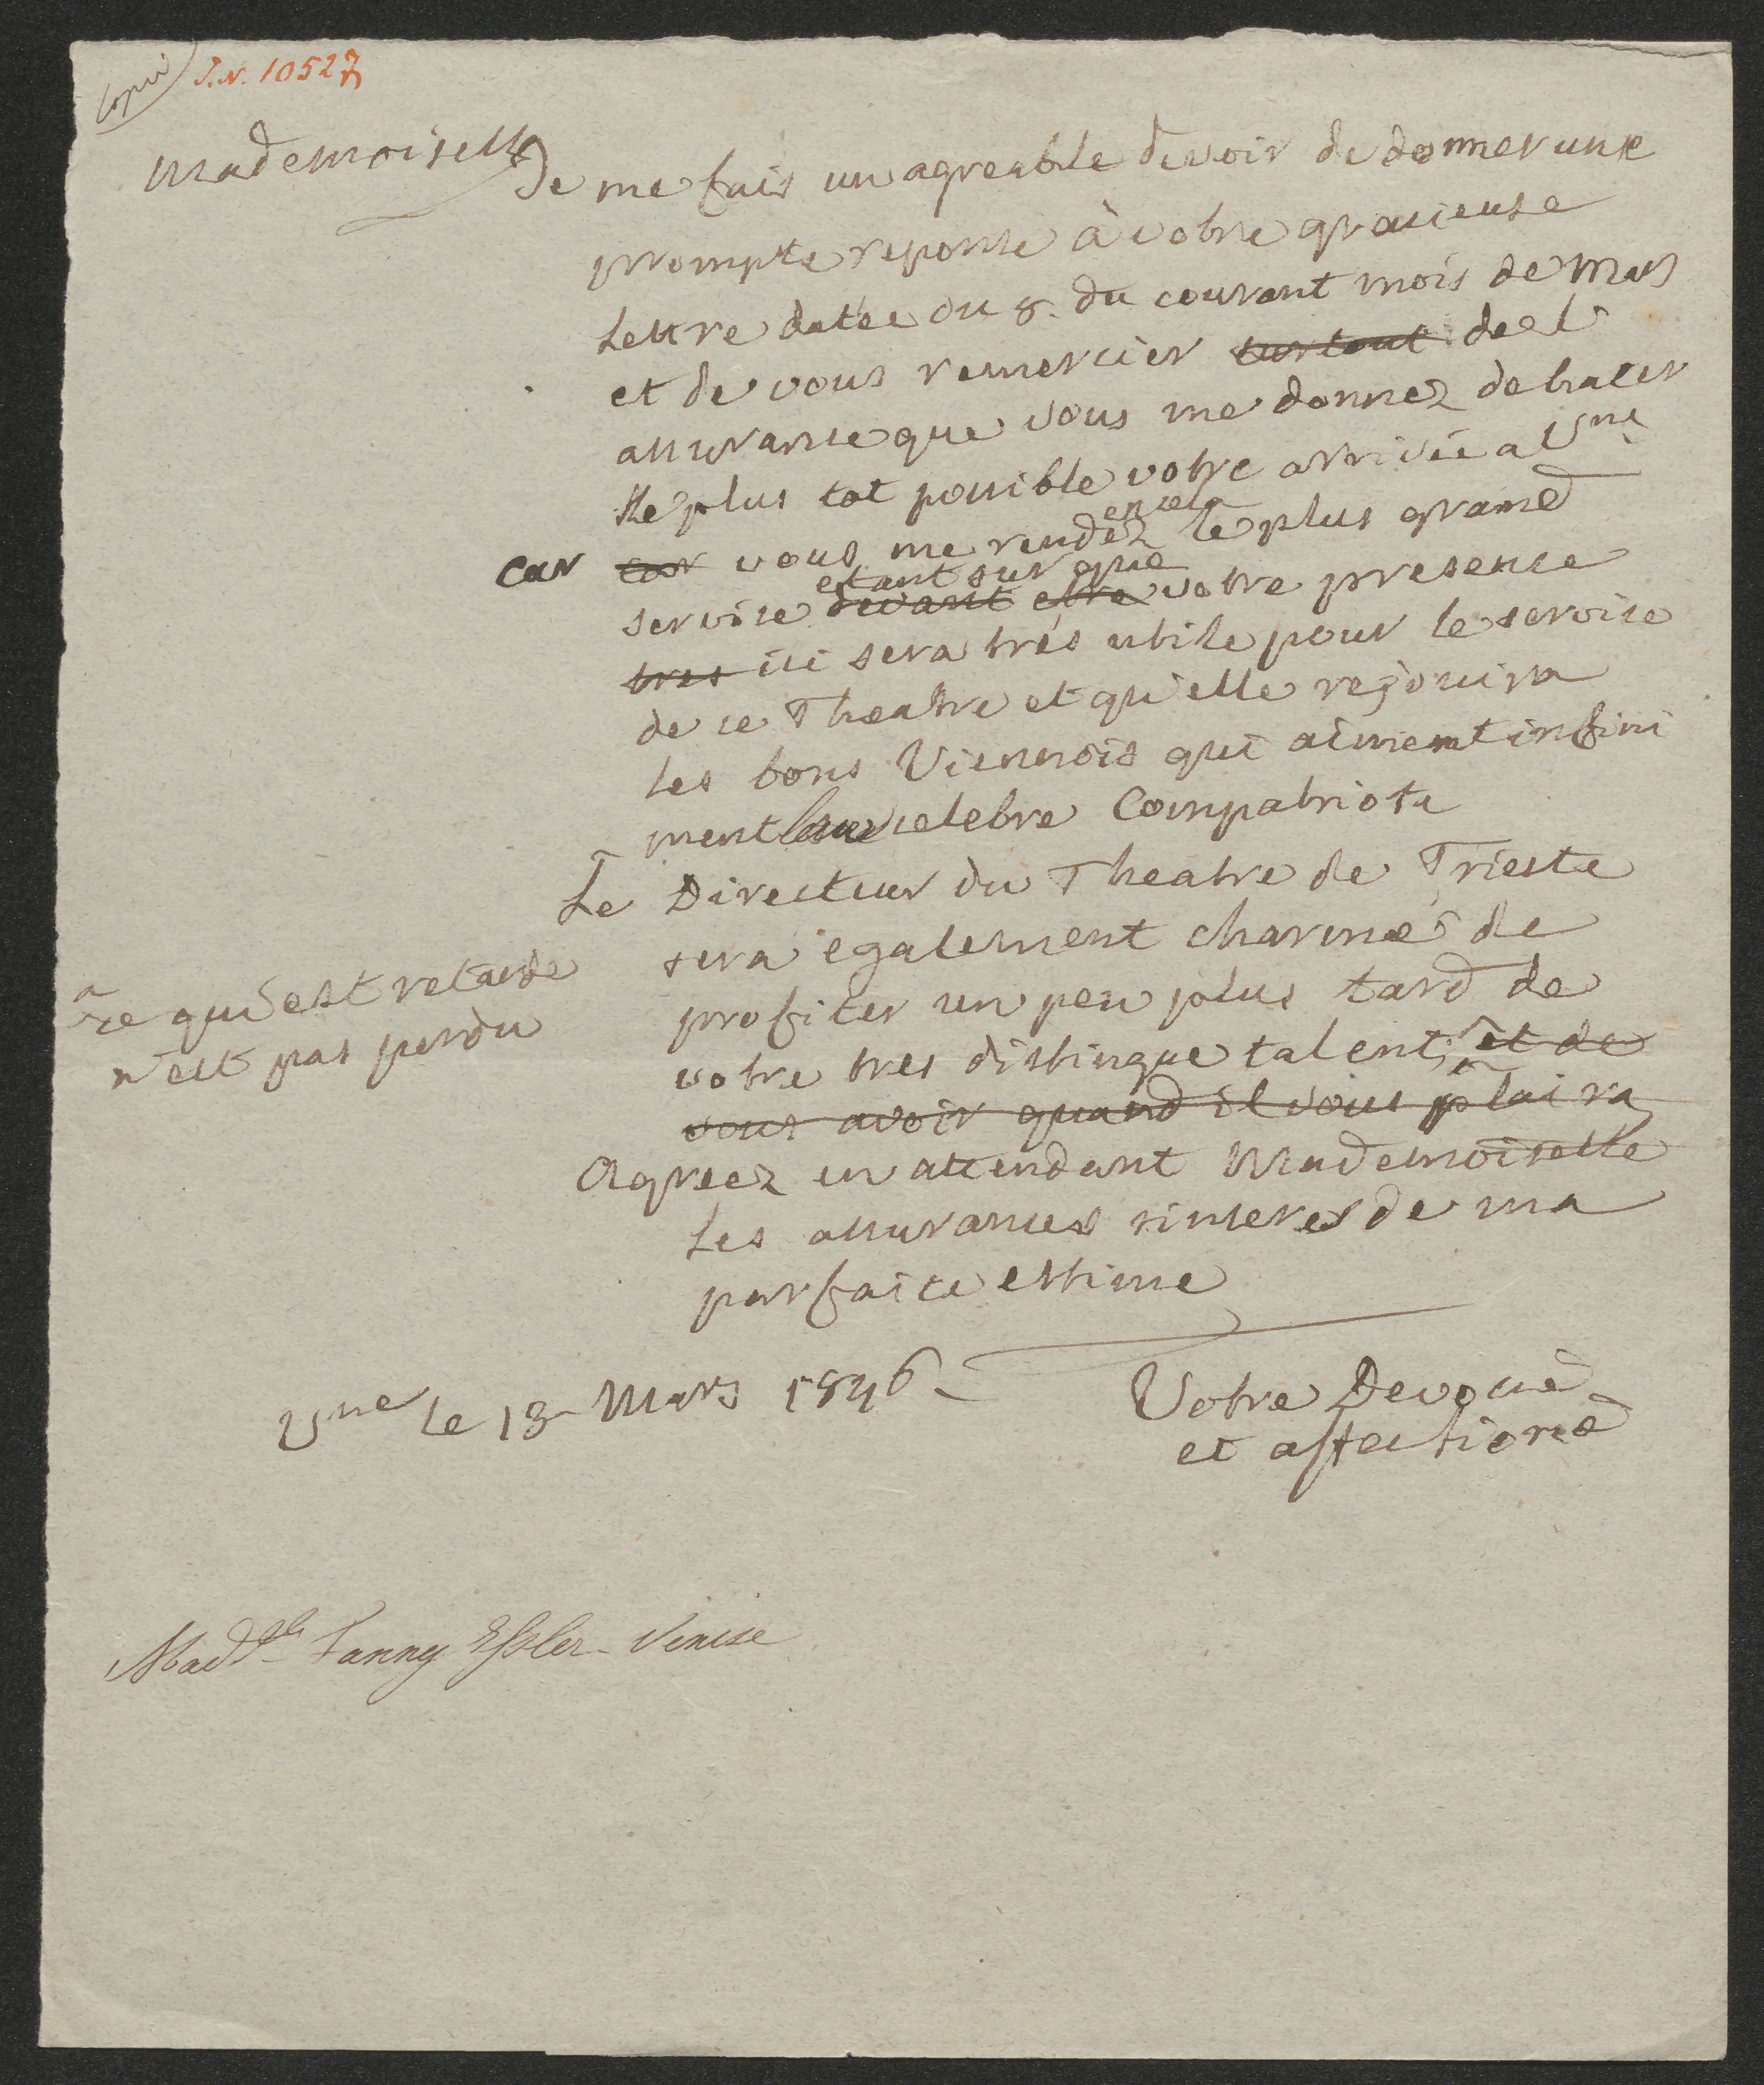 Copié
J.N. 10527
Mademoiselle
Je me fais un agreable devoir de donner une
prompte reponse à votre gracieuse
Lettre datée du 8. du courant mois de Mars
et de vous remercier surtout de l'
assurance que vous me donnez de hater
le plus tot possible votre arrivée a Vne
en cela
car car vous me rendez le plus grand
estant sur que
service devant etre votre presence
tres ici sera trés utile pour le servise
de ce Theatre et qu'elle rejouira
les bons Viennois qui aiment infini
ment leur celebre Compatriote
Le Directeur du Theatre de Trieste
sera egalement charmé de
profiter un peu plus tard de
votre tres distingue talent, et de
vous avoir quand il vous plaira
a
ce qui est retarde
n'est pas perdu
Agreez en attendant Mademoiselle
Les assurances sinceres de ma
parfaite estime
Vne le 13 Mars 1846
Votre Devoué
et affectioné
Madlle Fanny Elsler - Venise